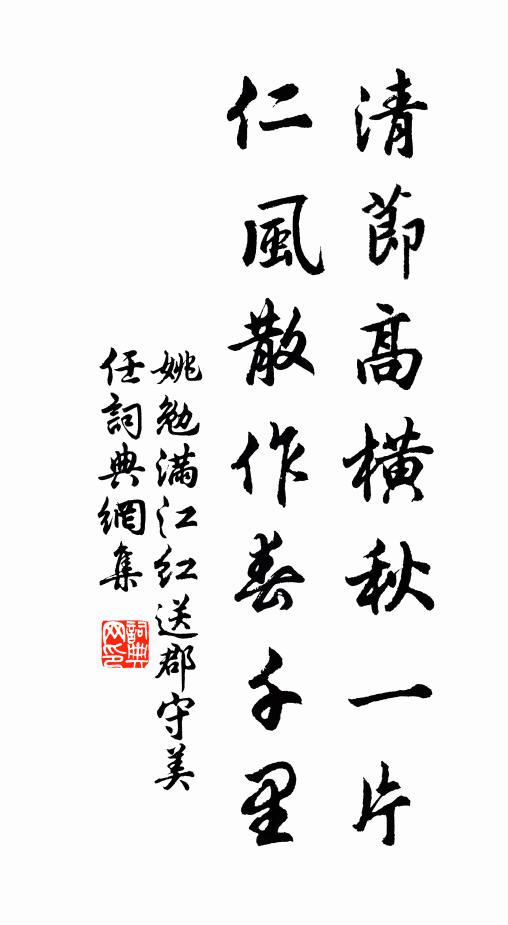 清節高橫秋一片
仁風散作春千里
姚勉滿江紅送郡守美
任詞典網集
詞典网印